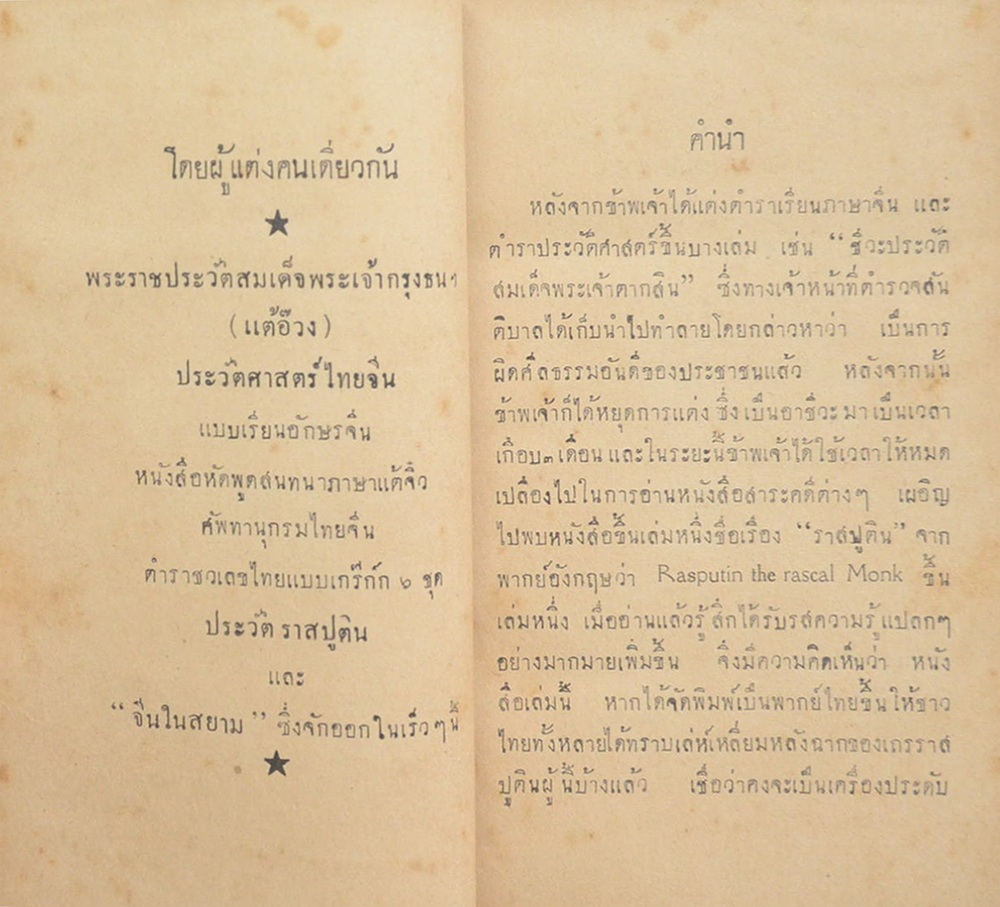 โดยผู้แต่งคนเดี่ยวกัน
★
พระราชประวัติสมเด็จพระเจ้ากรุงธนฯ
(แต้อ๊วง)
ประวัติศาสตร์ไทยจีน
แบบเรียนอักษรจีน
หนังสือหัดพูดสนทนาภาษาแต้จิ๋ว
ศัพทานุกรมไทยจีน
ตำราชวเลขไทยแบบเกร๊กก์ ๖ ชุด
ประวัติ ราสปูติน
และ
“จีนในสยาม” ซึ่งจักออกในเร็วๆนี้
★
คำนำ
หลังจากข้าพเจ้าได้แต่งตำราเรียนภาษาจีน และ
ตำราประวัติศาสตร์ขึ้นบางเล่ม เช่น “ชีวะประวัติ
สมเด็จพระเจ้าตากสิน” ซึ่งทางเจ้าหน้าที่ตำรวจสัน
ติบาลได้เก็บนำไปทำลายโดยกล่าวหาว่า เป็นการ
ผิดศีลธรรมอันดีของประชาชนแล้ว หลังจากนั้น
ข้าพเจ้าก็ได้หยุดการแต่ง ซึ่ง เป็นอาชีวะ มา เป็นเวลา
เกือบ๓ เดือน และในระยะนี้ข้าพเจ้าได้ใช้เวลาให้หมด
เปลืองไปในการอ่านหนังสือสาระคดีต่างๆ เผอิญ
ไปพบหนังสือขึ้นเล่มหนึ่งชื่อเรื่อง “ราสปูติน” จาก
พากย์อังกฤษว่า Rasputin the rascal Monk ขึ้น
เล่มหนึ่ง เมื่ออ่านแล้วรู้สึกได้รับรสความรู้แปลกๆ
อย่างมากมายเพิ่มขึ้น จึงมีความคิดเห็นว่า หนัง
สือเล่มนี้ หากได้จัดพิมพ์เป็นพากย์ไทยขึ้นให้ชาว
ไทยทั้งหลายได้ทราบเล่ห์เหลี่ยมหลังฉากของเถรราส
ปูตินผู้นี้บ้างแล้ว เชื่อว่าคงจะเป็นเครื่องประดับ